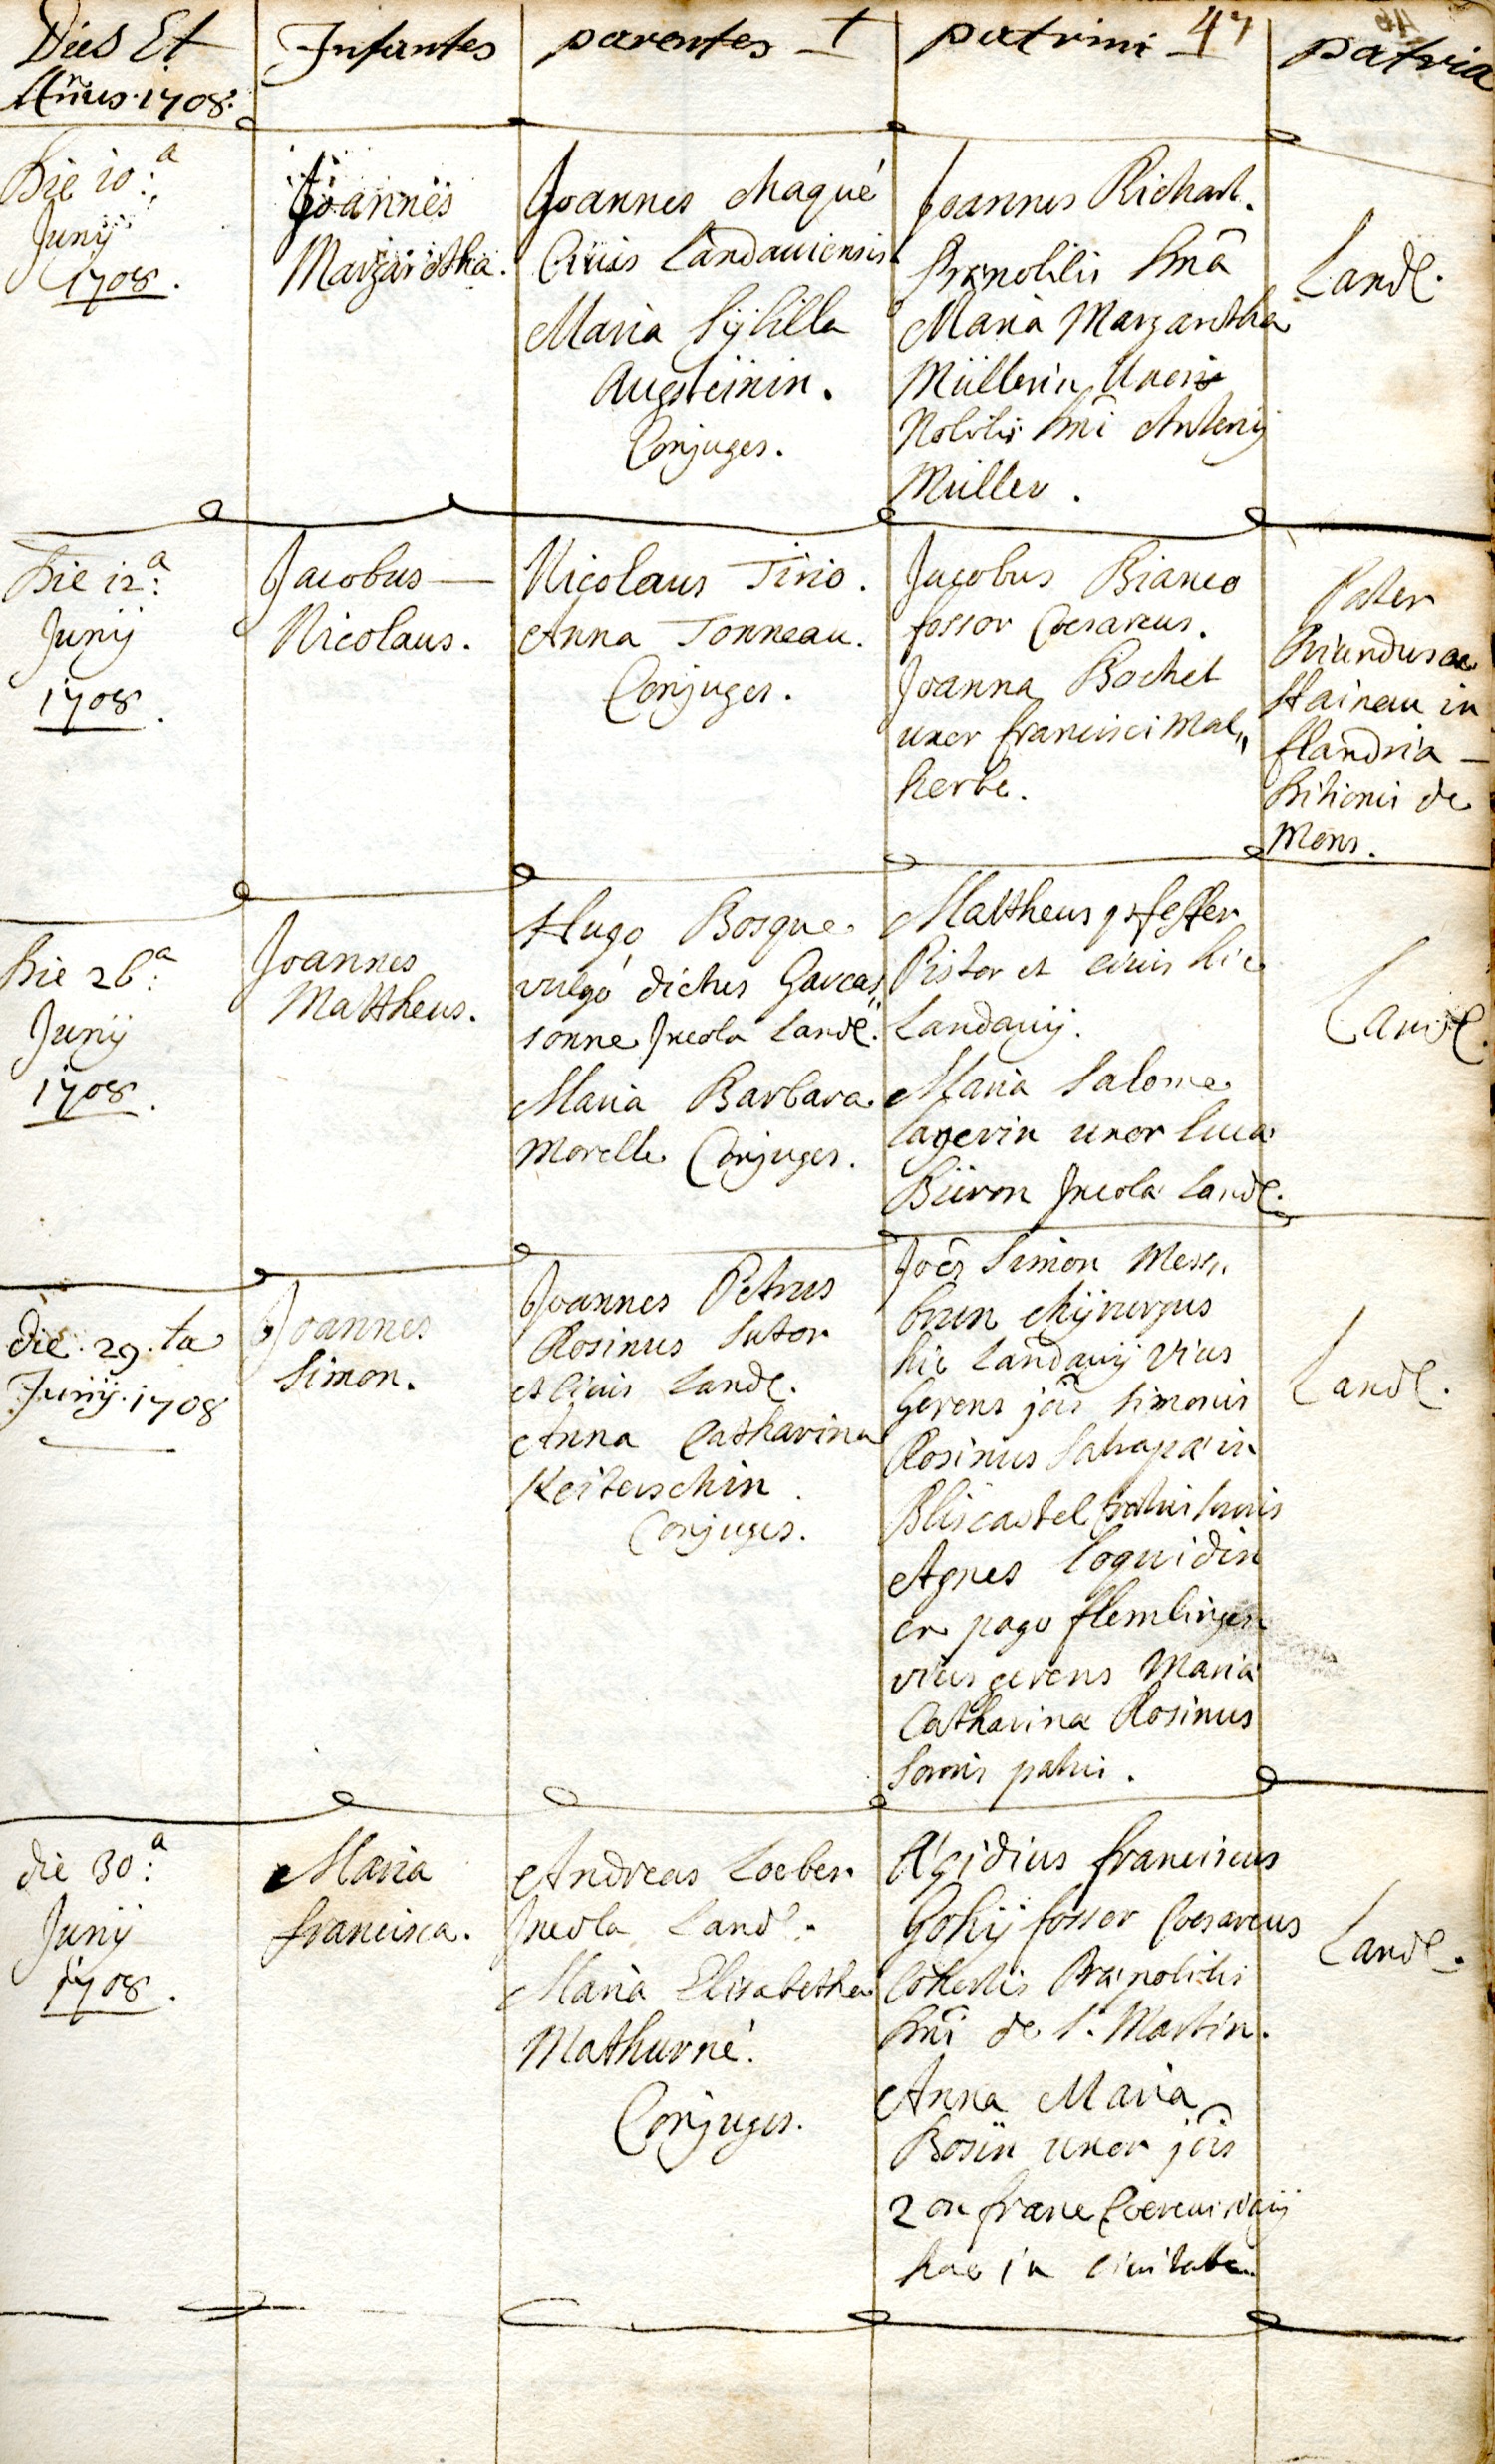 Dies Et
Añus 1708.
Infantes
parentes
patrini 47
patria
Die 10:a
Junÿ
1708.
Joannes
Margaretha.
Joannes Maqué
Civis Landaviensis
Maria Sÿbilla
Augsteinin.
Conjuges.
Joannes Richart.
Prænobilis Dnã
Maria Margaretha
Müllerin Uxor
Nobilis Dnĩ Antonÿ
Müller.
Landl.
Die 12:a
Junÿ
1708.
Jacobus —
Nicolaus.
Nicolaus Tirio.
Anna Tonneau.
Conjuges.
Jacobus Bianco
fossor Cæsareus.
Joanna Bochet
uxor francisci Mal„
herbe.
Pater
oriundus ae
Hainau in
flandria —
Ditionis de
Mons.
Die 26:a
Junÿ
1708.
Joannes
Mattheus.
Hugo Bosque
vulgó dictus Garcas„
sonne Incola Landl.
Maria Barbara
Morelle Conjuges.
Mattheus pfeffer
Pistor et civis hic
Landavÿ.
Maria Salome
lagerin uxor Lucæ
Büron Incolæ Landl.
Landl.
die 29.ta
Junÿ 1708
Joannes
Simon.
Joannes Petrus
Rosinus Sutor
et Civis Landl.
Anna Catharina
Keiterschin
Conjuges.
Joẽs Simon Mess„
brun chÿrurgus
hic Landavÿ vices
Gerens jõis Simonis
Rosinus Satrapæ in
Bliscastel
Agnes Loquidin
ex pago flemlingen
vices gerens Maria
Catharina Rosinus
Sororis patris.
Landl.
die 30:a
Junÿ
1708.
Maria
francisca.
Andreas Loeber
Incola Landl.
Maria Elisabetha
Mathurné.
Conjuges.
Ægidius franciscus
Gohÿ fossor Cæsareus
Cohortis Prænobilis
Dnĩ de S. Martin.
Anna Maria
Bosin uxor jõis
hac in civitate.
Landl.